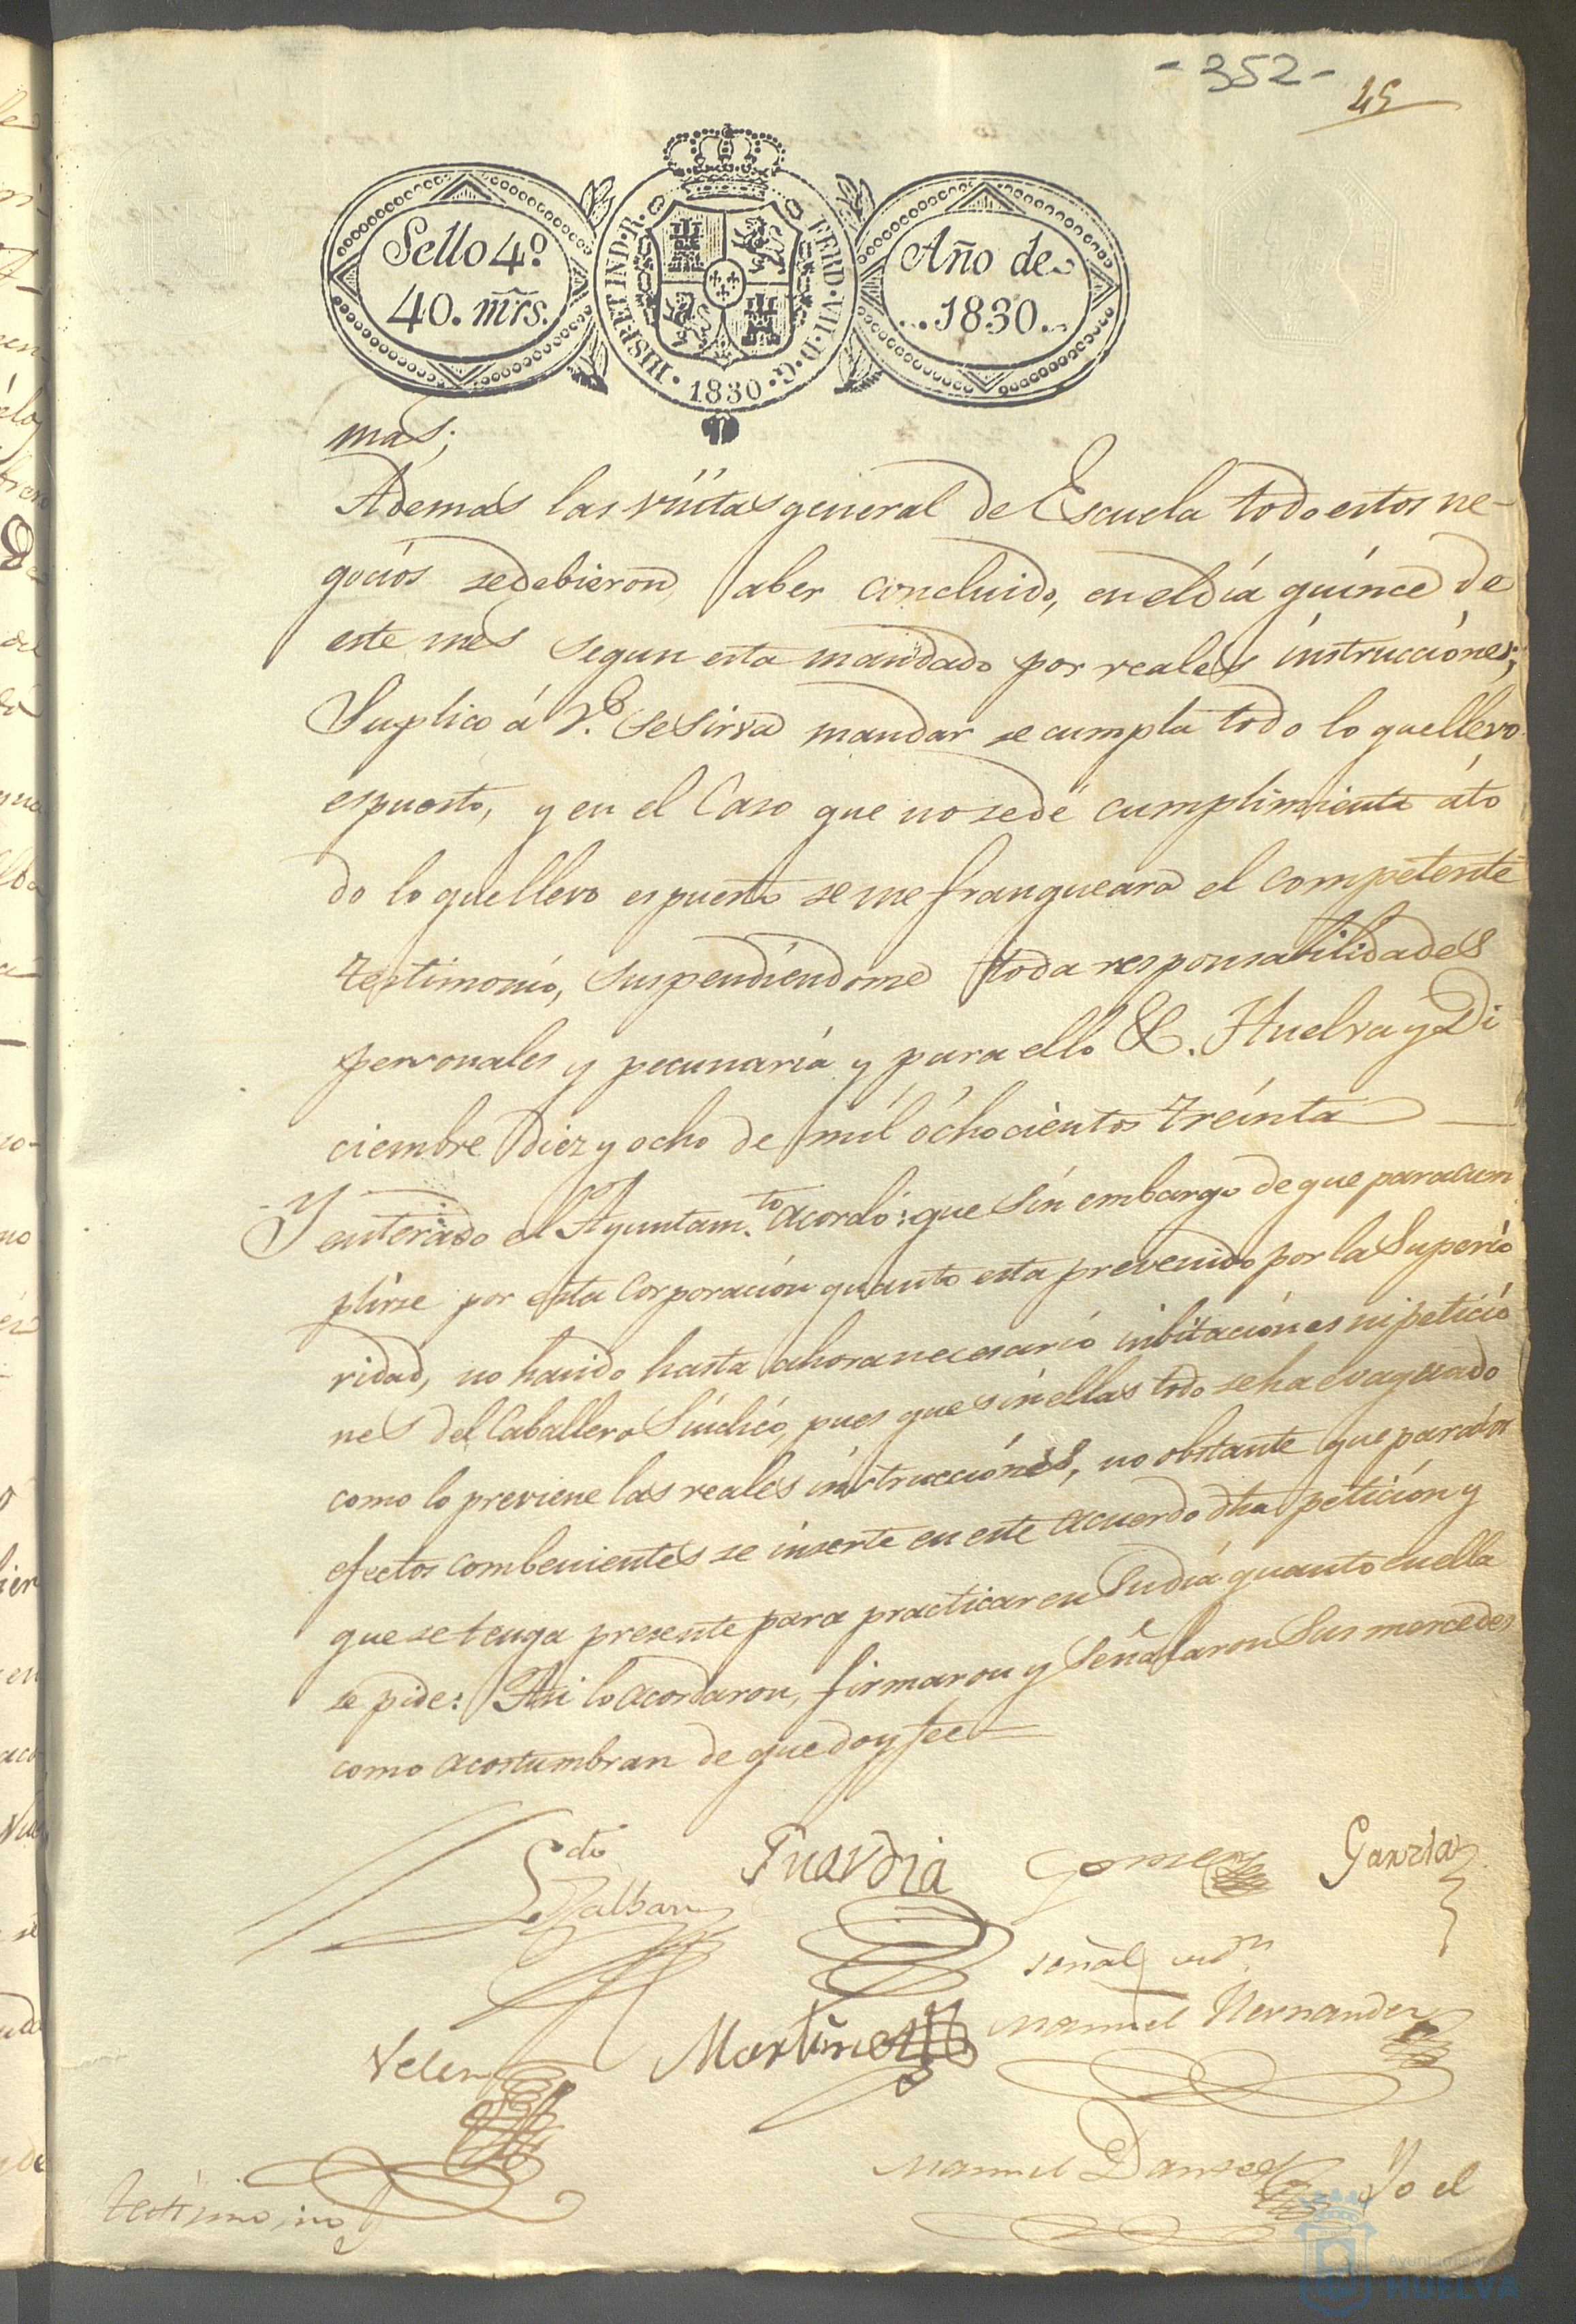 - 352 -
45
Sello 4º
40. mrs.
HISP. ET IND. R.
FERD. VII. D. G.
1830
Año de
1830
mas;
Ademas las visitas general de Escuela todo estos ne-
gocios se debieron aber concluido, en el dia quince de
este mes segun esta mandado por reales instrucciones;
Suplico á V. Se Sirva mandar se cumpla todo lo que llevo
espuesto, y en el Caso que no se dé cumplimiento áto
do lo que llevo espuesto se me franqueara el competente
testimonio, suspendiendome toda responsabilidades
personales y pecunaria y para ello &. Huelva y Di
ciembre Diez y ocho de mil óchocientos treinta
Y enterado el Ayuntam.to acordó: que sin embargo de que para cum
plirse por esta Corporacion quanto esta prevenido por la Superio
ridad, no havido hasta ahora necesario inbitaciones ni peticio
nes del Caballero Sindico, pues que sin ellas todo se ha evaquado
como lo previene las reales instrucciones, no obstante que para los
efectos combenientes se inserte en este acuerdo dha peticion y
que se tenga presente para practicar en Su dia quanto en ella
se pide: Asi lo acordaron, firmaron y Señalaron Sus mercedes
como acostumbran de que doy fee
Ldo
Galban
Guardia
Gomez
Garzia
Señal
Velez
Martinez
Manuel Hernandez
Manuel
Yo el
testimonio
Ayuntamiento
HUELVA